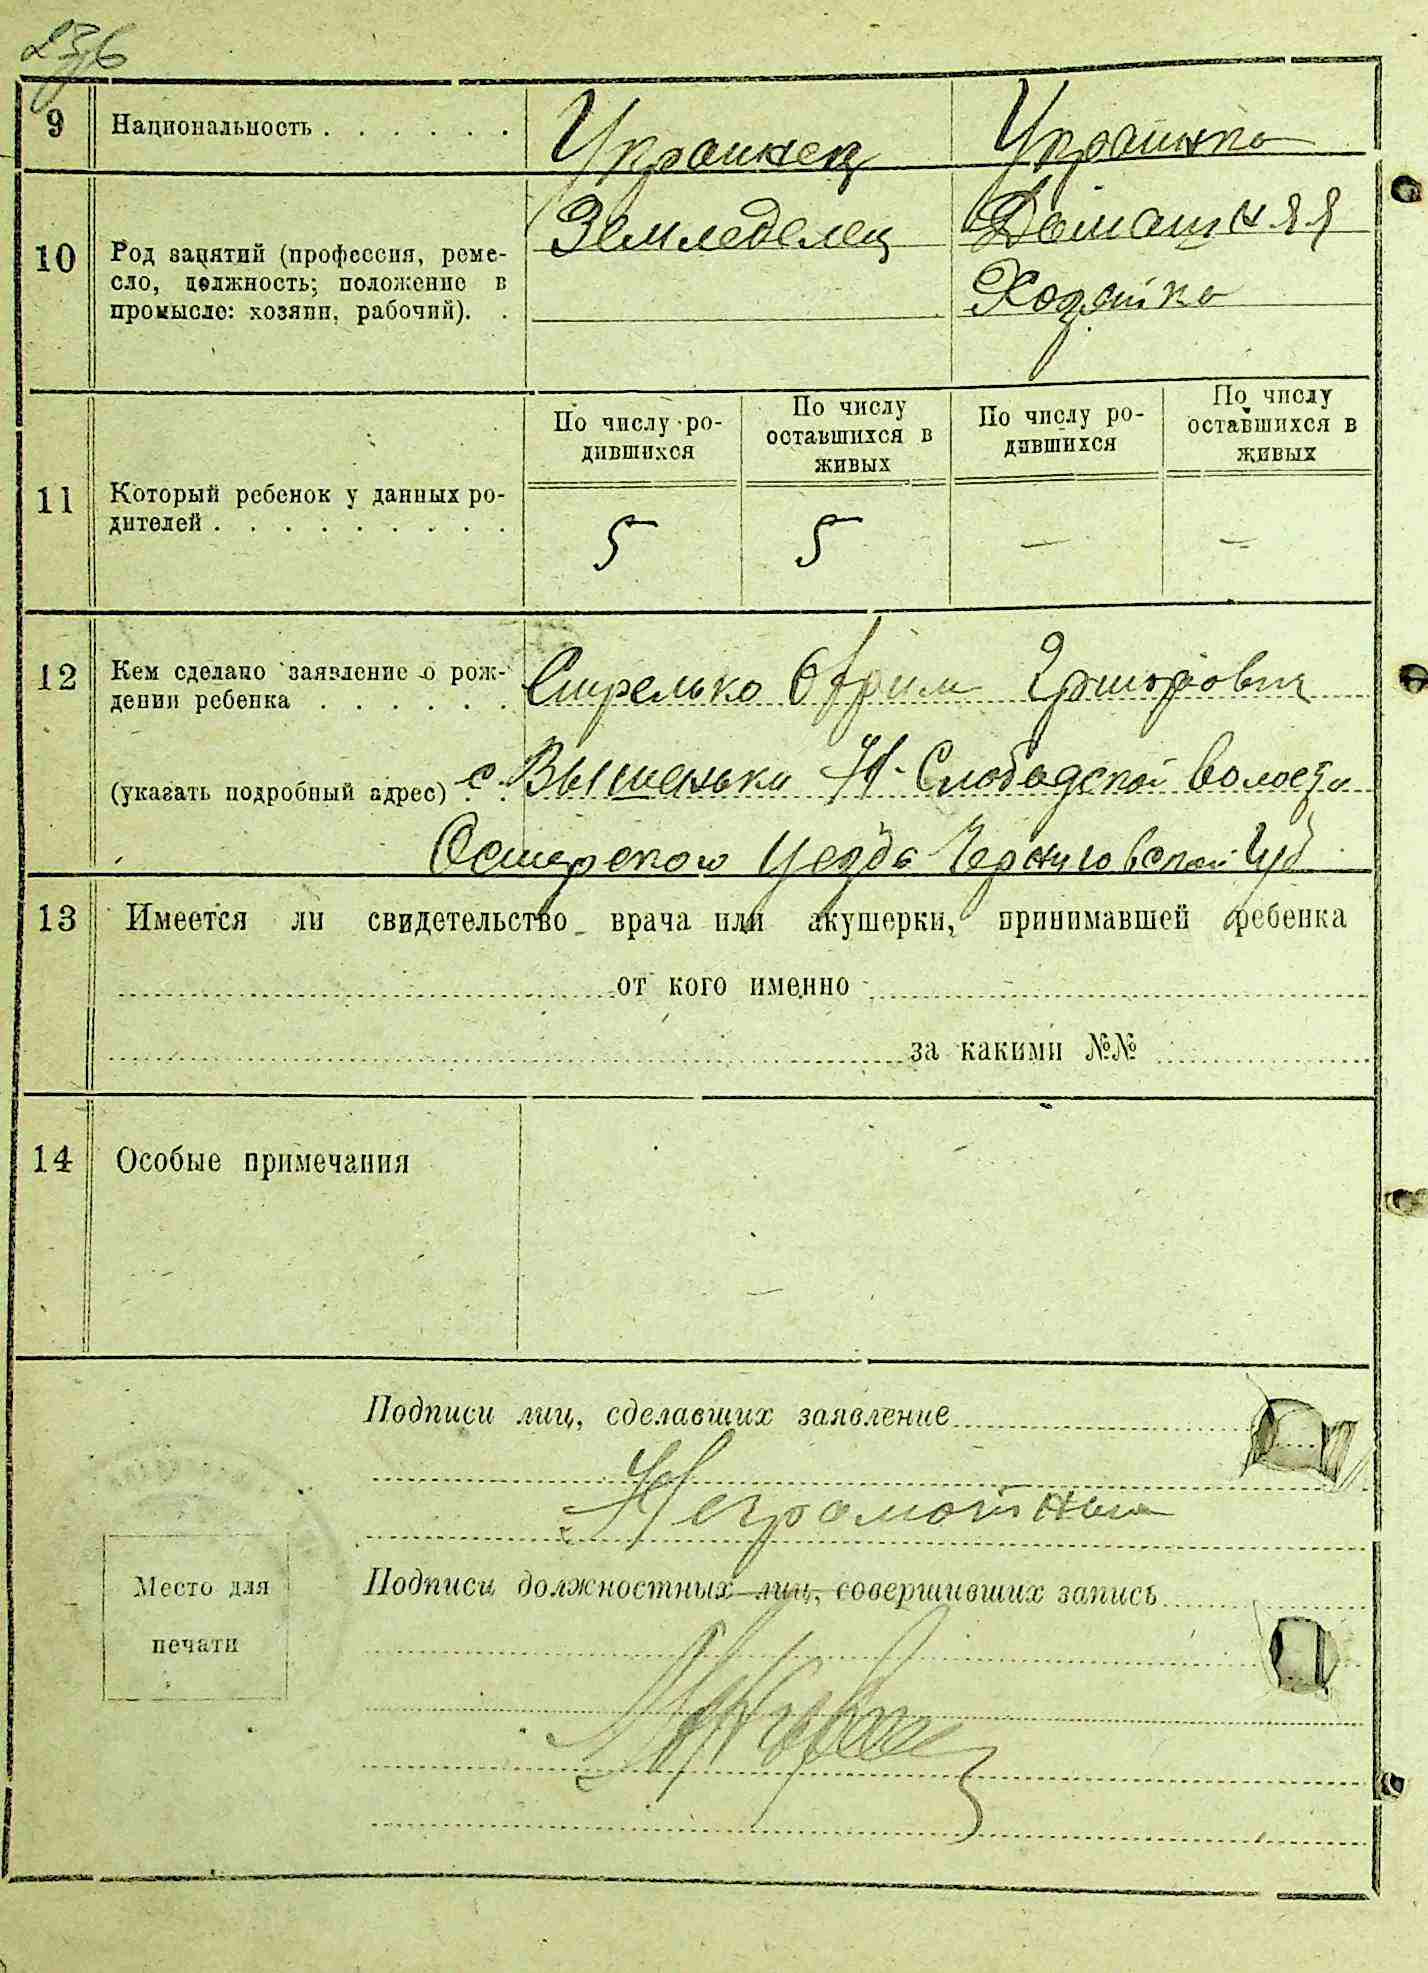 236
9 Национальность . . . . . . Украинец Украинка
10 Род занятий (профессия, реме-
сло, должность; положение в
промысле: хозяин, рабочий). .
Земледелец
Домашняя
Хозяйка
11 Который ребенок у данных ро-
дителей . . . . . . . . .
По числу ро-
дившихся
По числу
оставшихся в
живых
По числу ро-
дившихся
По числу
оставшихся в
живых
5 5 — —
12 Кем сделано заявление о рож-
дении ребенка . . . . . .
Стрелько Ефрим Григорович
(указать подробный адрес) с. Вышеньки Н-Слободской волости
Остерского Уезда Черниговской Губ
13 Имеется ли свидетельство врача или акушерки, принимавшей ребенка
от кого именно
за какими №№
14 Особые примечания
Подписи лиц, сделавших заявление
Неграмотный
Место для
печати
Подписи должностных лиц, совершивших запись